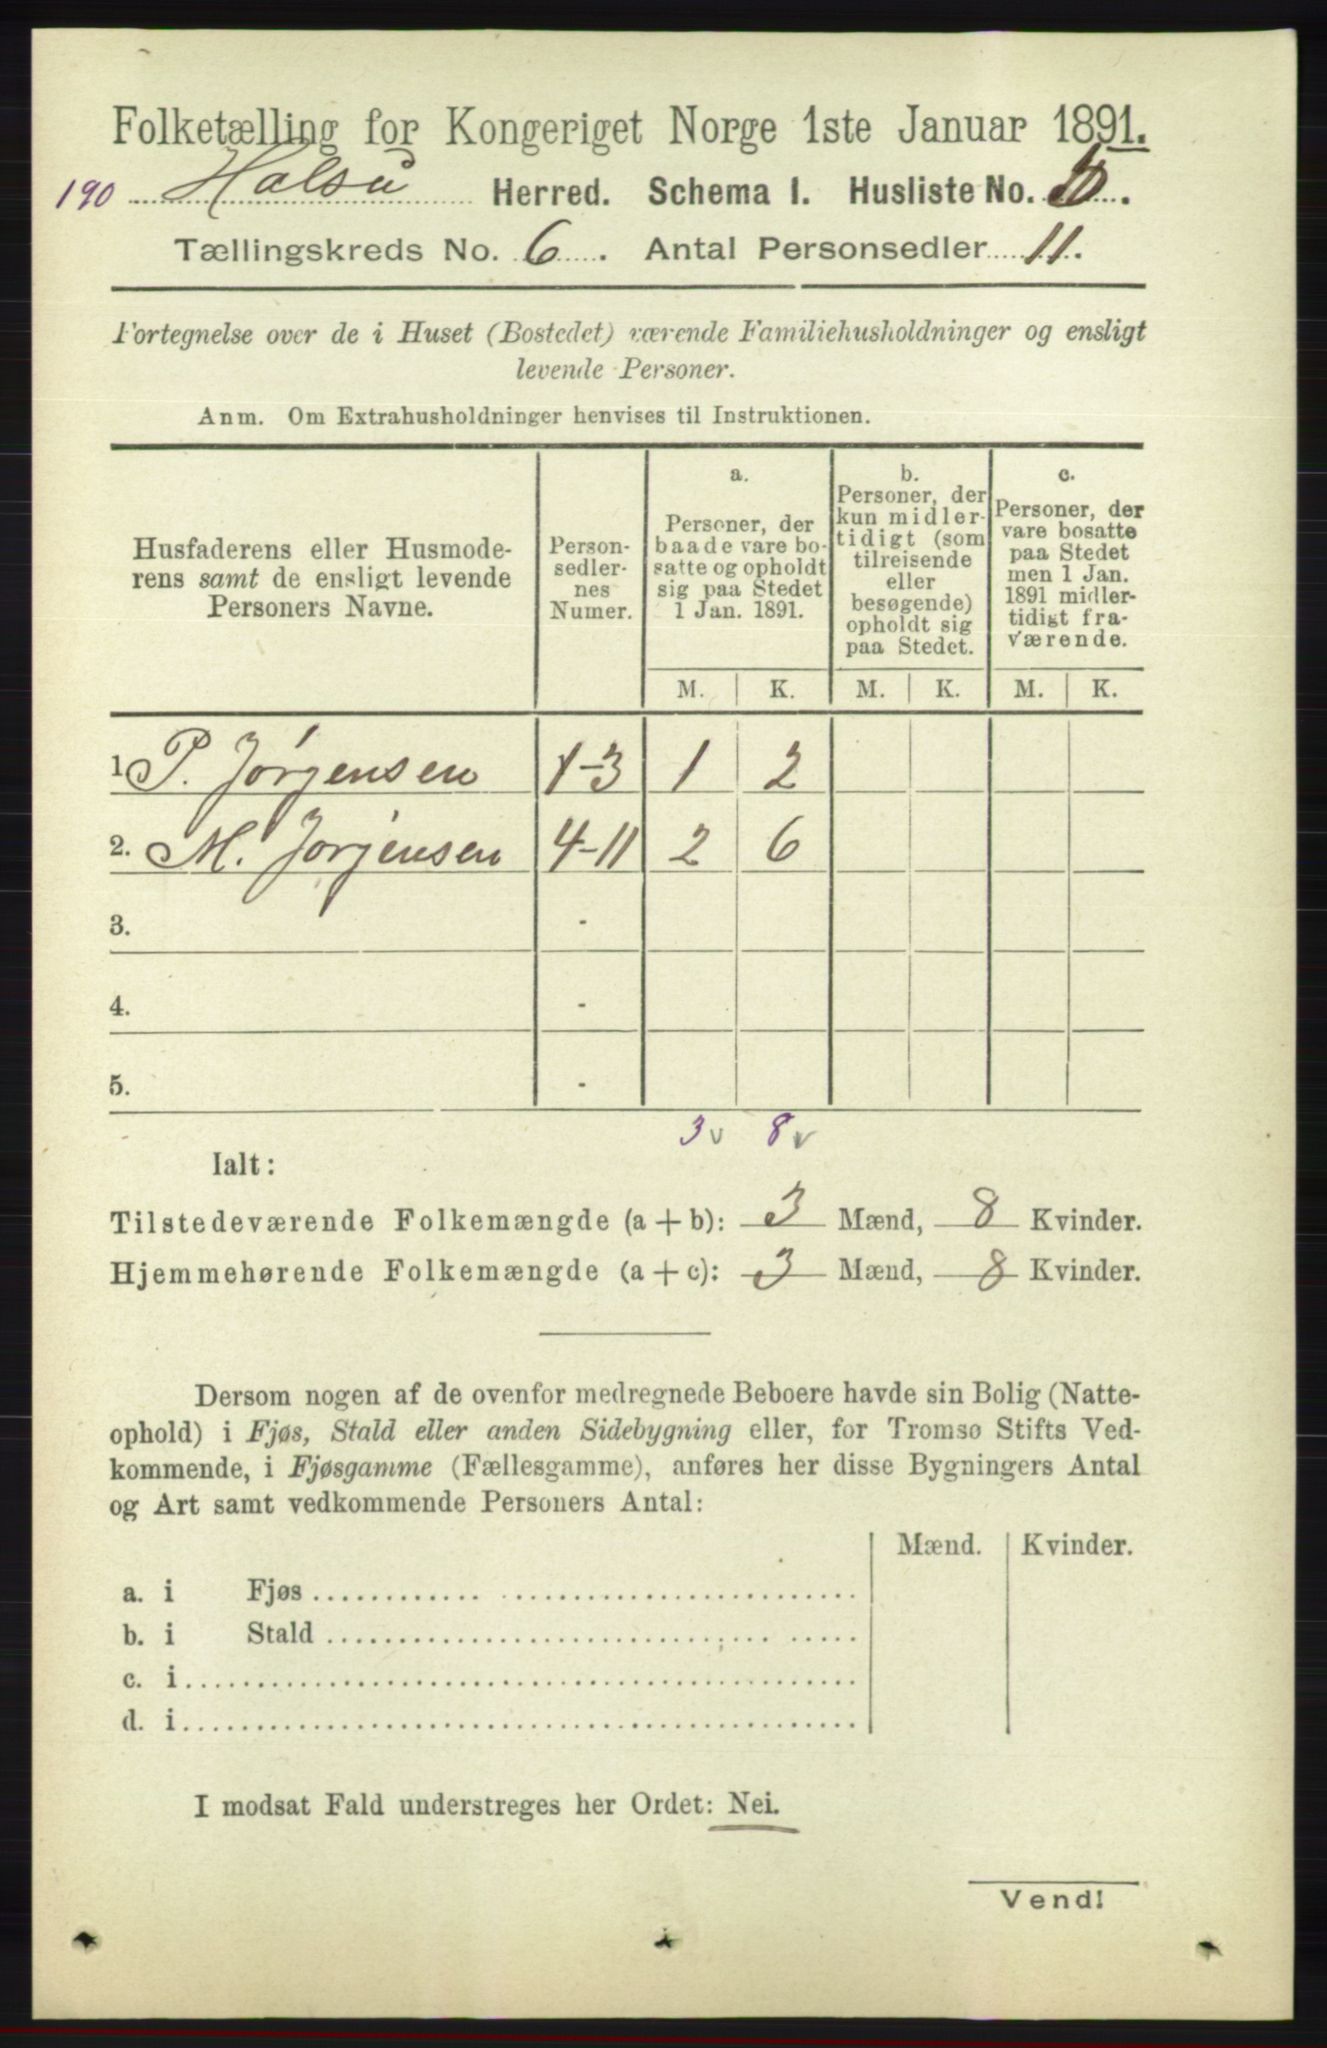 Folketælling for Kongeriget Norge 1ste Januar 1891.
190 Halsu Herred. Schema I. Husliste No.
Tællingskreds No. 6. Antal Personsedler 11.
Fortegnelse over de i Huset (Bostedet) værende Familiehusholdninger og ensligt
levende Personer.
Anm. Om Extrahusholdninger henvises til Instruktionen.
Husfaderens eller Husmode-
rens samt de ensligt levende
Personers Navne.
Person-
sedler-
nes
Numer.
a.
Personer, der
baade vare bo-
satte og opholdt
sig paa Stedet
1 Jan. 1891.
b.
Personer, der
kun midler-
tidigt (som
tilreisende
eller
besøgende)
opholdt sig
paa Stedet.
c.
Personer, der
vare bosatte
paa Stedet
men 1 Jan.
1891 midler-
tidigt fra-
værende.
M. K. M. K. M. K.
1. P. Jørgensen 1-3 1 2
2. M. Jørgensen 4-11 2 6
3. -
4. -
5. -
3 v 8 v
Ialt:
Tilstedeværende Folkemængde (a + b): 3 Mænd, 8 Kvinder.
Hjemmehørende Folkemængde (a + c): 3 Mænd, 8 Kvinder.
Dersom nogen af de ovenfor medregnede Beboere havde sin Bolig (Natte-
ophold) i Fjøs, Stald eller anden Sidebygning eller, for Tromsø Stifts Ved-
kommende, i Fjøsgamme (Fællesgamme), anføres her disse Bygningers Antal
og Art samt vedkommende Personers Antal:
Mænd. Kvinder.
a. i Fjøs
b. i Stald
c. i
d. i
I modsat Fald understreges her Ordet: Nei.
Vend!